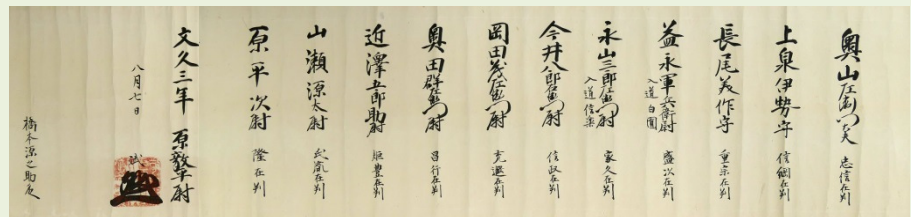 奥山左衛門大夫 忠信在判
上泉伊勢守 信綱在判
長尾美作守 重宗在判
益永軍兵衛尉 入道白圓 盛次在判
永山三郎左衛門尉 入道信楽 家久在判
今井八郎右衛門尉 信政在判
岡田茂左衛門尉 在判
奥田群右衛門尉 昌行在判
近澤五郎助尉 豊在判
山瀬源太尉 在判
原平次尉 隆在判
文久三年 原 尉
八月七日
橋本源之助殿